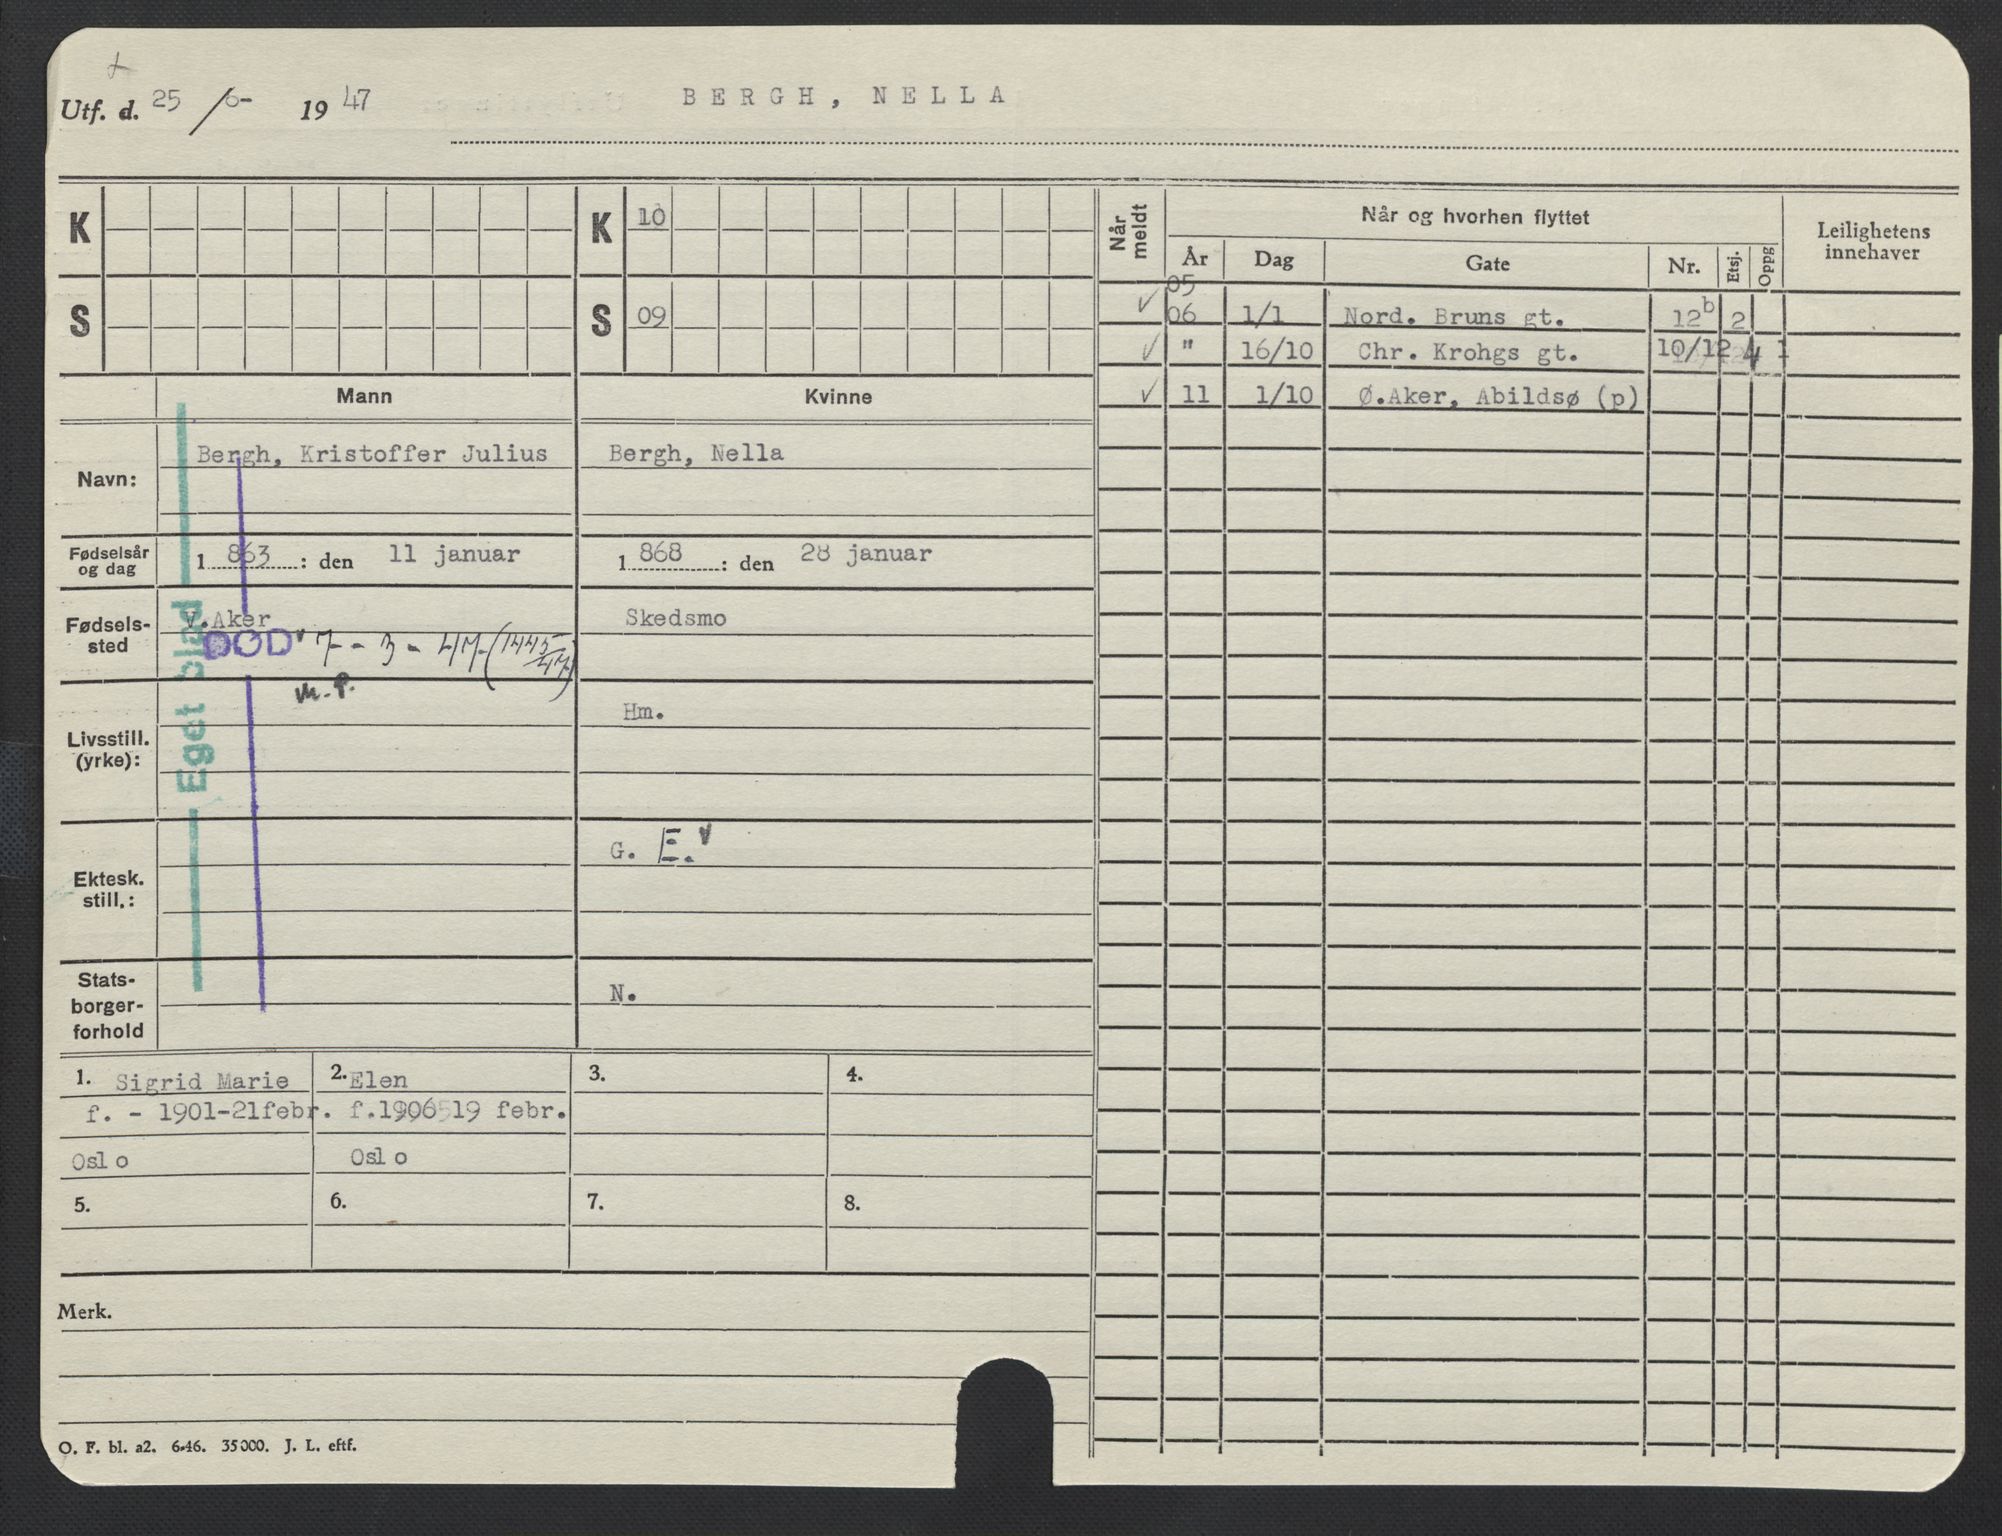 Utf. d. 25/6- 1947 BERGH, NELLA
K K 10
S S 09
Mann Kvinne
Navn: Bergh, Kristoffer Julius Bergh, Nella
Fødselsår og dag 1 863 : den 11 januar 1 868 : den 28 januar
Fødsels-sted V.Aker Skedsmo
DØD 7-3-47-(1445/47)
m.p.
Eget blad
Livsstill. (yrke): Hm.
Ektesk. still.: G. E.
Stats-borger-forhold N.
1. Sigrid Marie 2. Elen 3. 4.
f. - 1901-21febr. f.1906 19 febr.
Oslo Oslo
5. 6. 7. 8.
Merk.
O. F. bl. a2. 6-46. 35000. J. L. eftf.
Når meldt Når og hvorhen flyttet Leilighetens innehaver
År Dag Gate Nr. Etsj. Oppg
05
06 1/1 Nord. Bruns gt. 12b 2
" 16/10 Chr. Krohgs gt. 10/12 4 1
11 1/10 Ø.Aker, Abildsø (p)